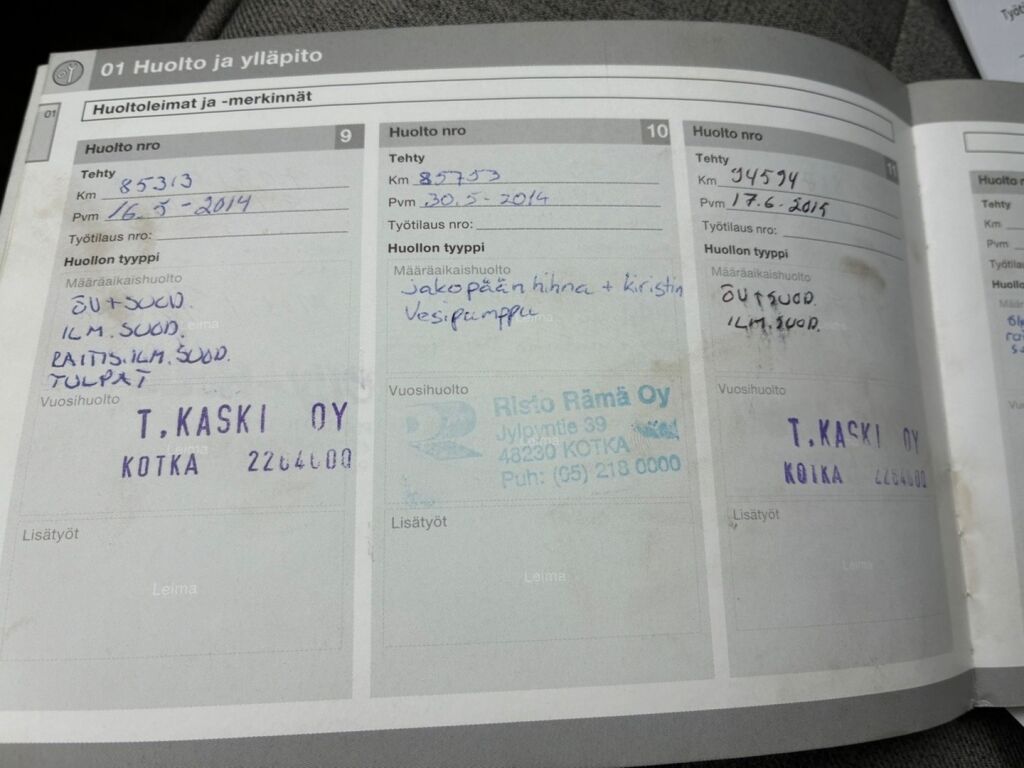 Työti
01 Huolto ja ylläpito
01
Huoltoleimat ja -merkinnät
Huolto nro 9
Tehty
Km 85313
Pvm 16.5-2014
Työtilaus nro:
Huollon tyyppi
Määräaikaishuolto
ÖV+SUOD.
ILM.SUOD.
RAITIS.ILM.SUOD.
TULPAT
Leima
Vuosihuolto
T.KASKI OY
KOTKA 2264600
Lisätyöt
Leima
Huolto nro 10
Tehty
Km 85753
Pvm 30.5-2014
Työtilaus nro:
Huollon tyyppi
Määräaikaishuolto
jakopään hihna + kiristin
Vesipumppu
Vuosihuolto
Risto Rämä Oy
Jylpyntie 39
48230 KOTKA
Puh: (05) 218 0000
Leima
Lisätyöt
Leima
Huolto nro 11
Tehty
Km 94594
Pvm 17.6.2015
Työtilaus nro:
Huollon tyyppi
Määräaikaishuolto
ÖV+SUOD.
ILM.SUOD.
Vuosihuolto
T.KASKI OY
KOTKA 2264600
Lisätyöt
Leima
Huolto n
Tehty
Km
Pvm
Työtilau
Huollo